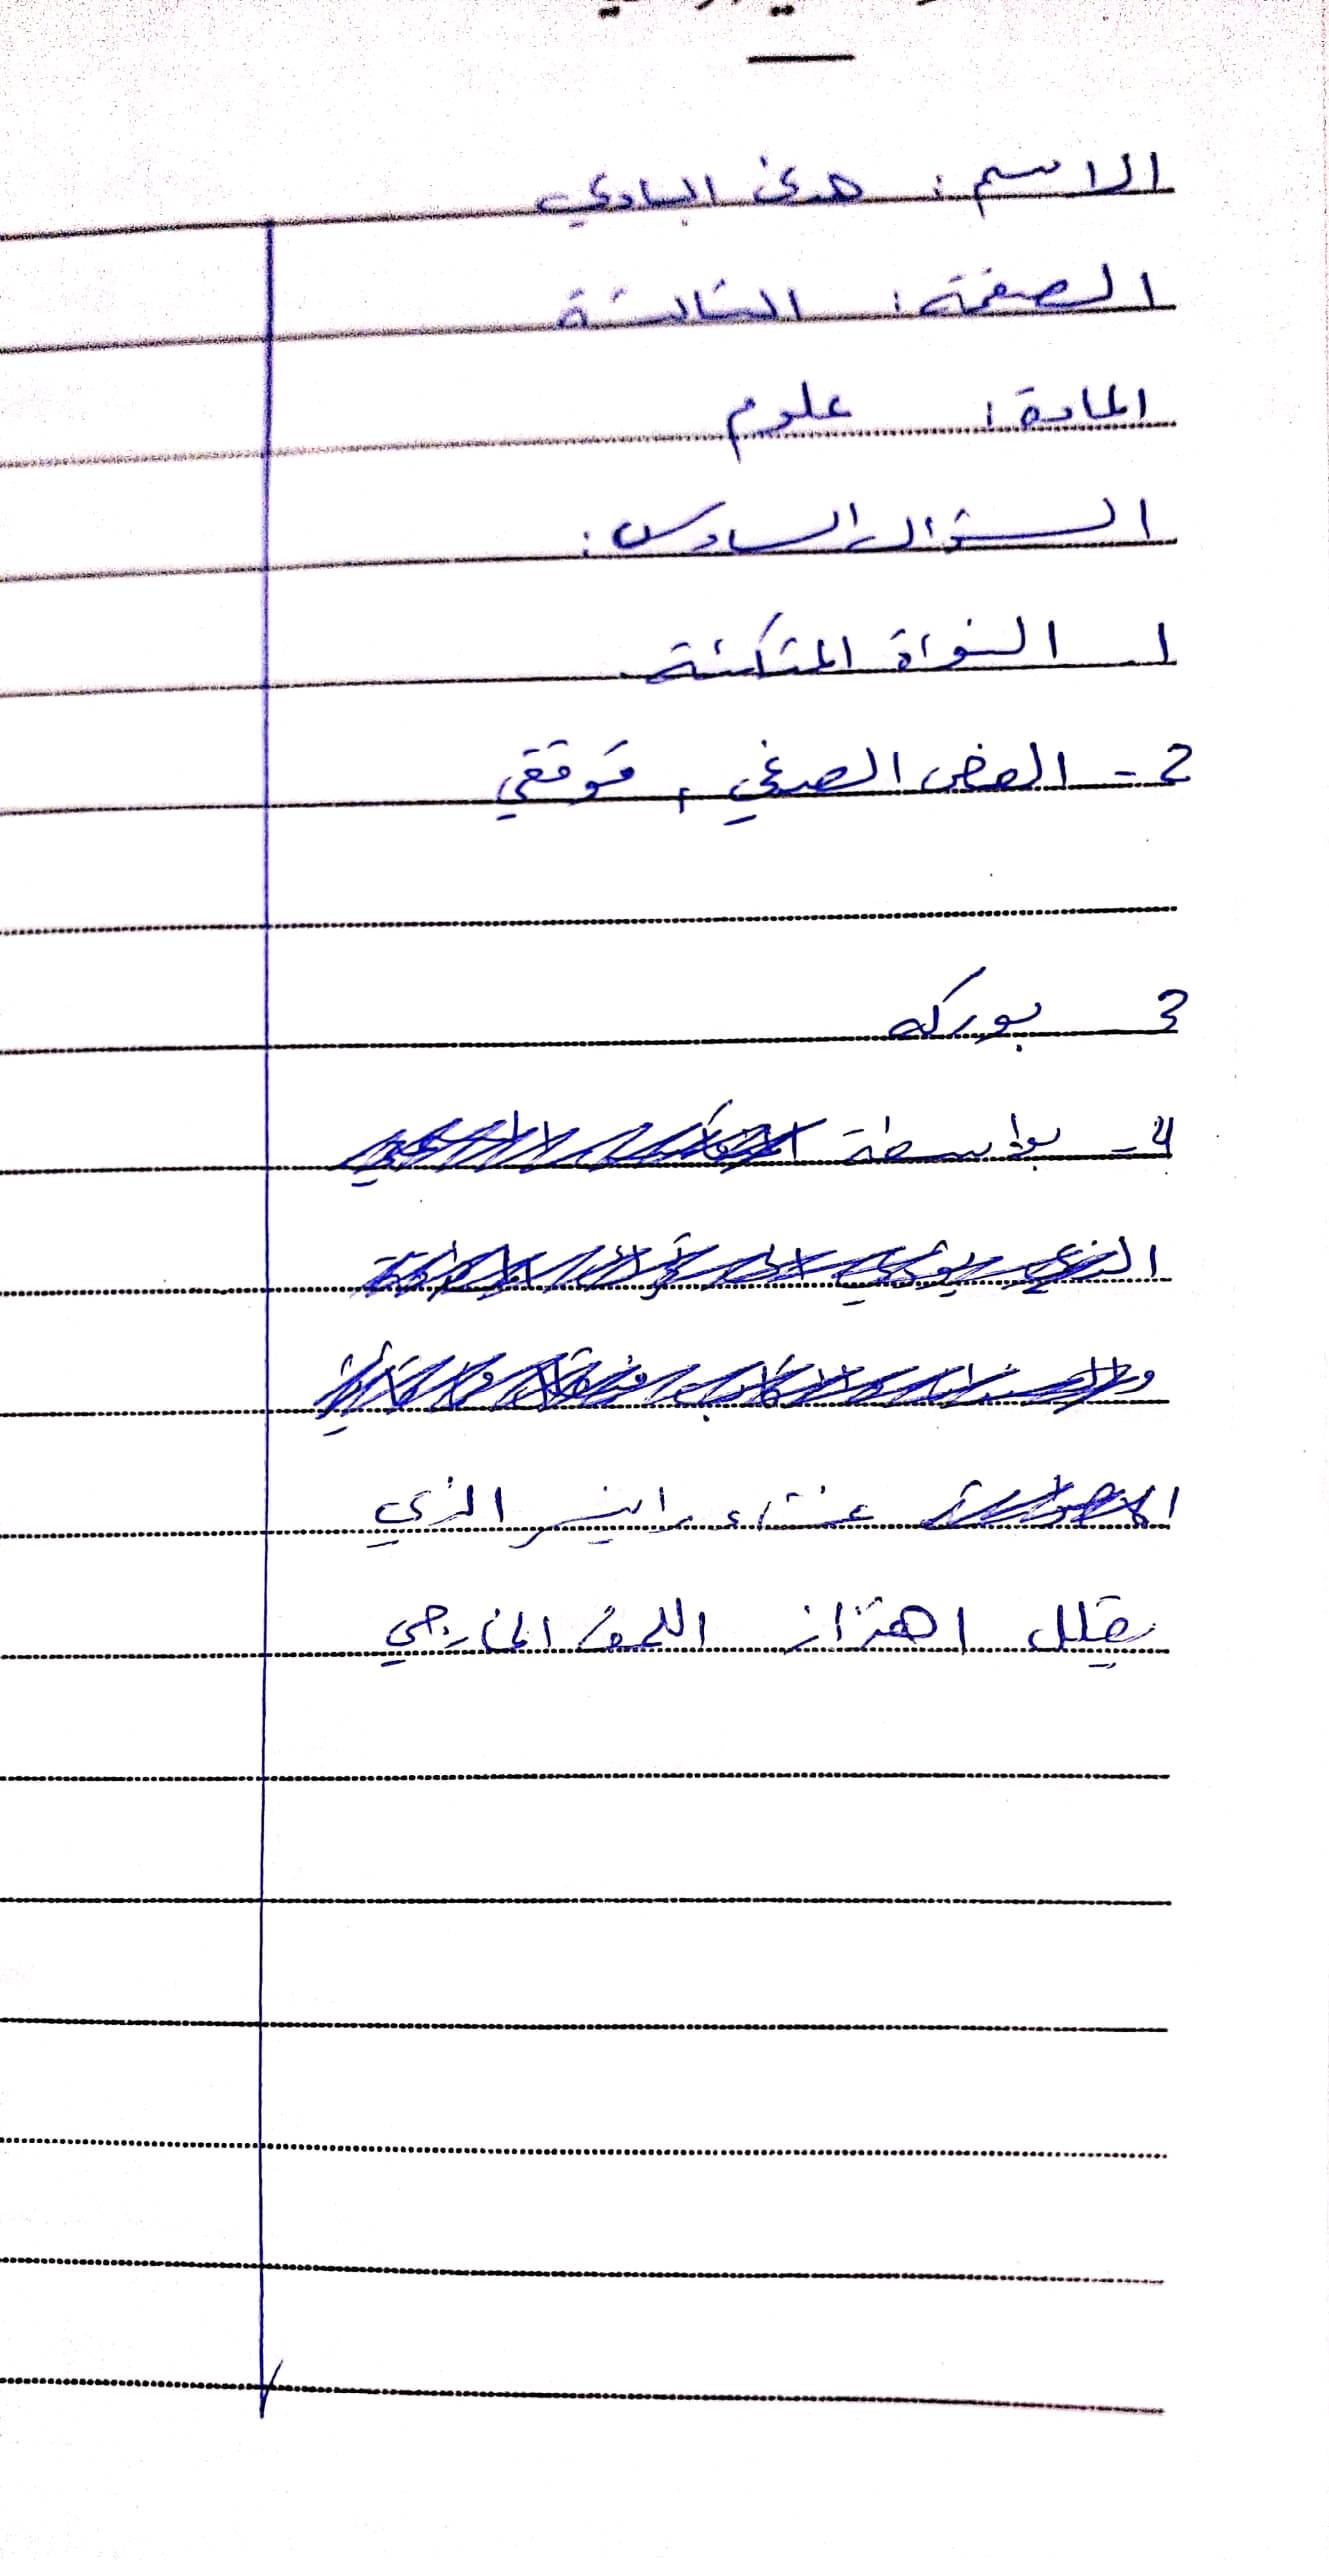 الاسم : هدى البادي
الصفحة : الثالثة
المادة : علوم
السؤال السادس :
1 ـ النواة المتكئة
2 - الفص الصدغي ، قوقعي
3 ـ بوركه
4 - بواسطة
غشاء راينسر الذي
يقلل اهتزاز اللمف الخارجي